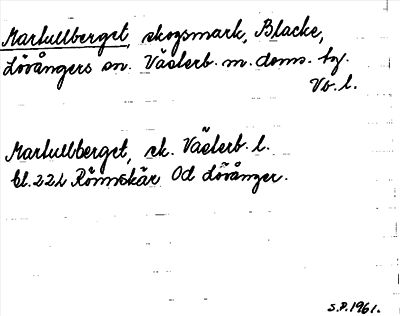 Markullberget, skogsmark, Blacke,
Lövångers sn. Västerb. m. doms. hg.
Vb. l.
Markullberget, sk. Västerb. l.
bl. 22L Rönnskär Od Lövånger.
S.P. 1961.